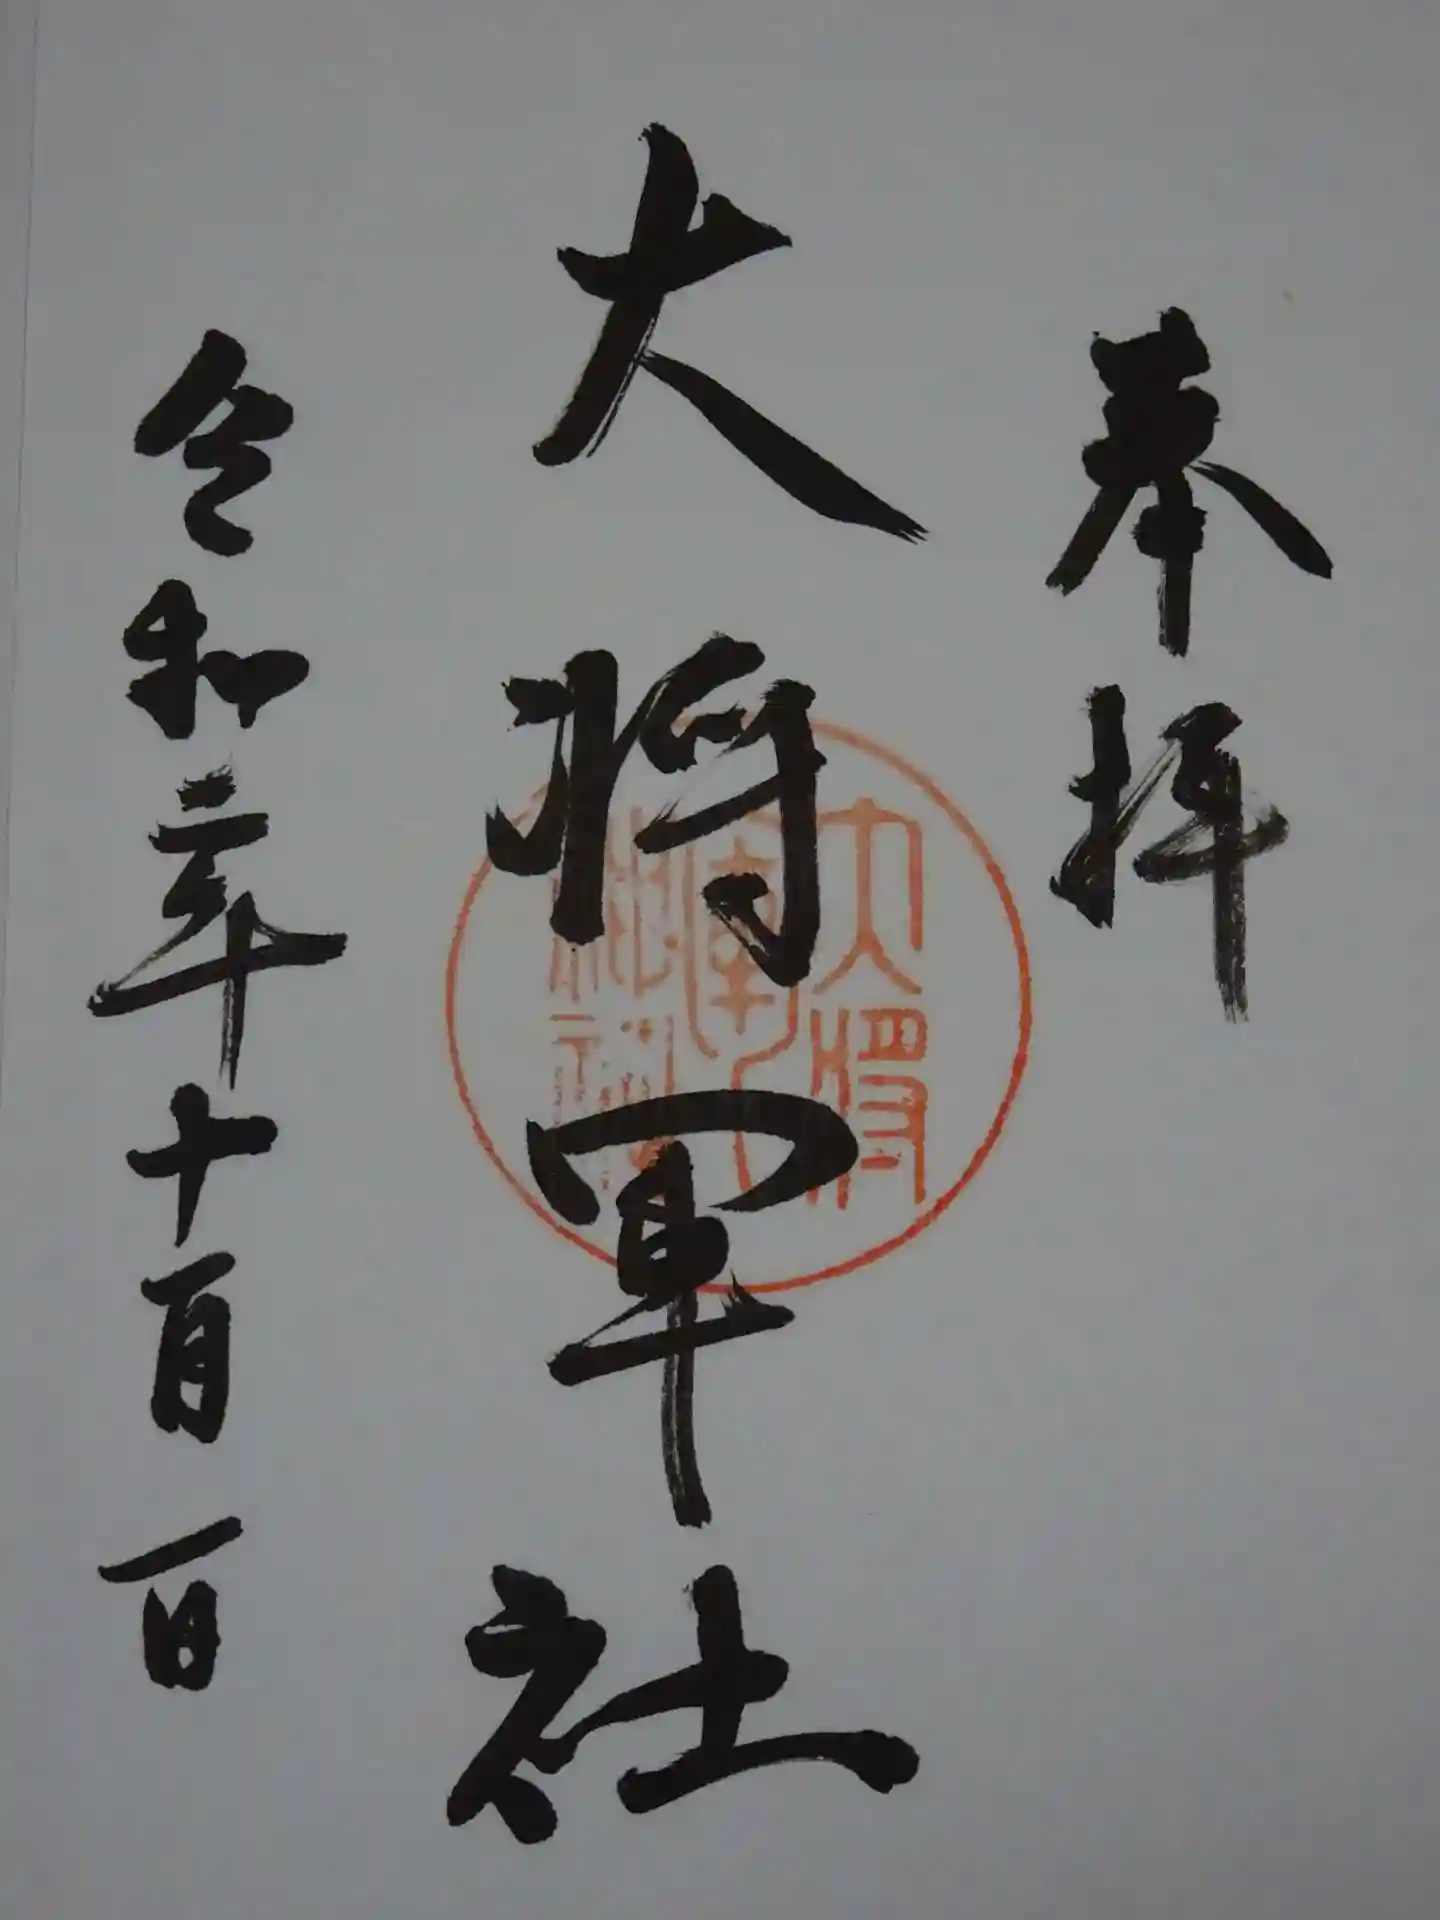 奉拝
大将軍社
令和二年十一月一日
大将軍神社